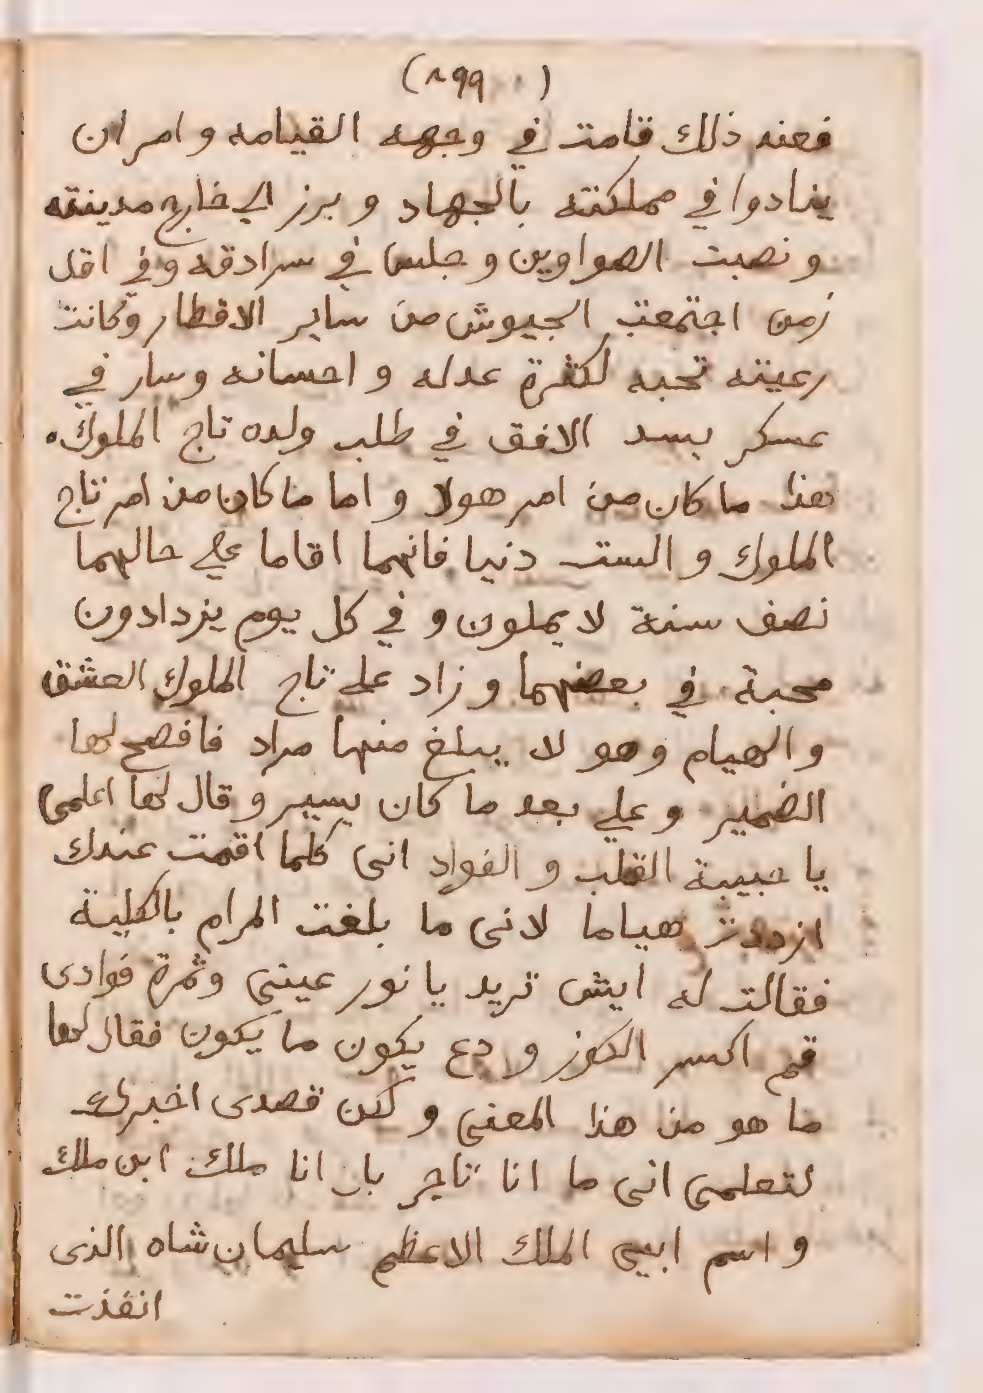 (٨٩٩)
فعند ذلك قامت في وجهه القيامه و امر ان
ينادوا في مملكته بالجهاد و برز الي خارج مدينته
و نصبت الصواوين و جلس في سرادقه وفي اقل
زمن اجتمعت الجيوش من ساير الاقطار وكانت
رعيته تحبه لكثرة عدله و احسانه وسار في
عسكر يسد الافق في طلب ولده تاج الملوك.
هذا ما كان من امر هولا و اما ما كان من امر تاج
الملوك و الست دنيا فانهما اقاما علي حالهما
نصف سنة لا يملون و في كل يوم يزدادون
محبة في بعضهما و زاد علي تاج الملوك العشق
و الهيام وهو لا يبلغ منها مراد فافصح لها
الضمير و علي بعد ما كان يسير و قال لها اعلمي
يا حبيبة القلب و الفواد اني كلما اقمت عندك
ازددت هياما لاني ما بلغت المرام بالكلية
فقالت له ايش تريد يا نور عيني وثمرة فوادي
قم اكسر الكوز و دع يكون ما يكون فقال لها
ما هو من هذا المعني و لكن قصدي اخبرك
لتعلمي اني ما انا تاجر بل انا ملك ابن ملك
و اسم ابيي الملك الاعظم سليمان شاه الذي
انفذت